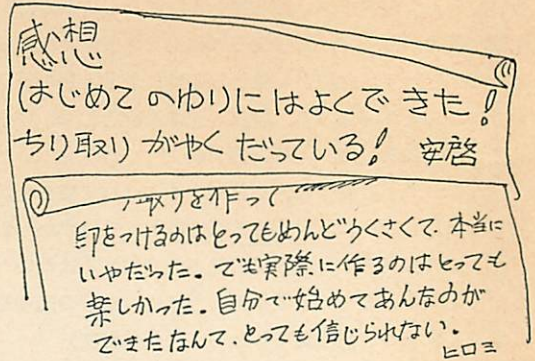 感想
はじめてのわりにはよくできた!
ちり取りがやくだっている! 安啓
取りを作って
印をつけるのはとってもめんどうくさくて、本当に
いやだった。でも実際に作るのはとっても
楽しかった。自分で始めてあんなのが
できたなんて、とっても信じられない。
ヒロミ